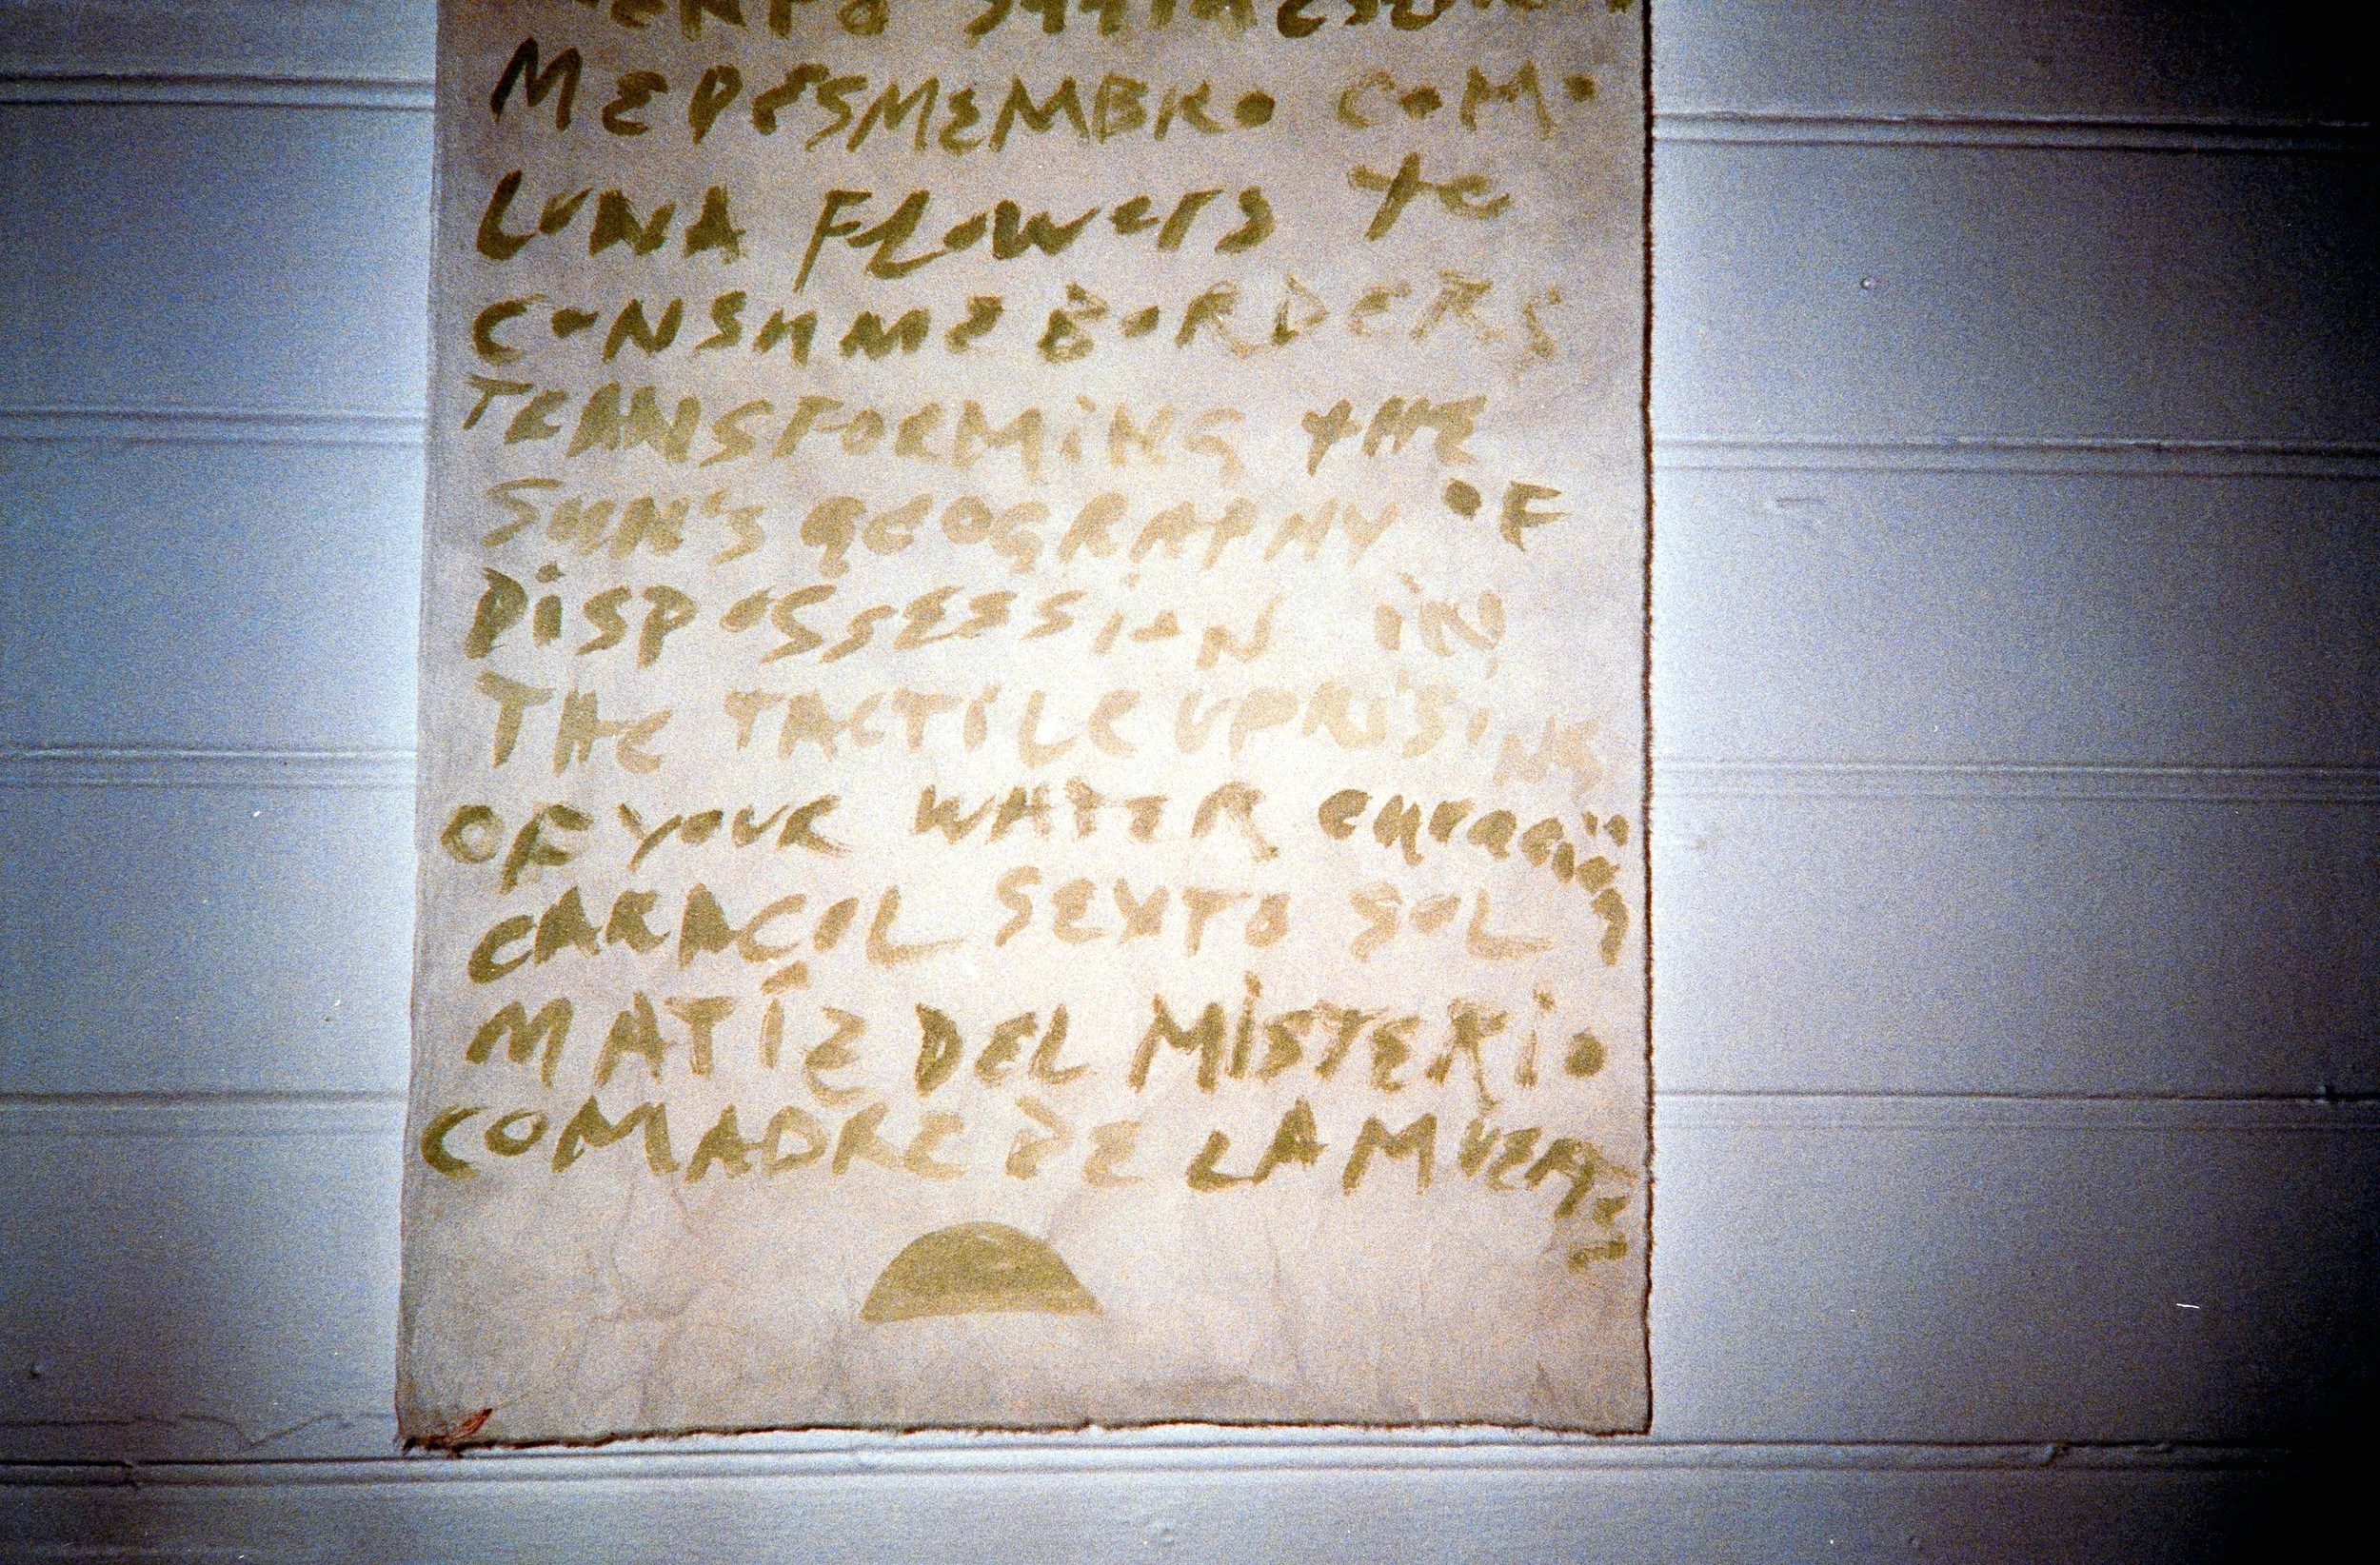 ME DESMEMBRO COMO
LUNA FLOWERS te
CONSUME BORDERS
TRANSFORMING THE
SUN'S GEOGRAPHY OF
DISPOSSESSION IN
THE TACTILE UPRISING
OF YOUR WATER
CARACOL SEXTO SOL
MATÍZ DEL MISTERIO
COMADRE DE LA MUERTE